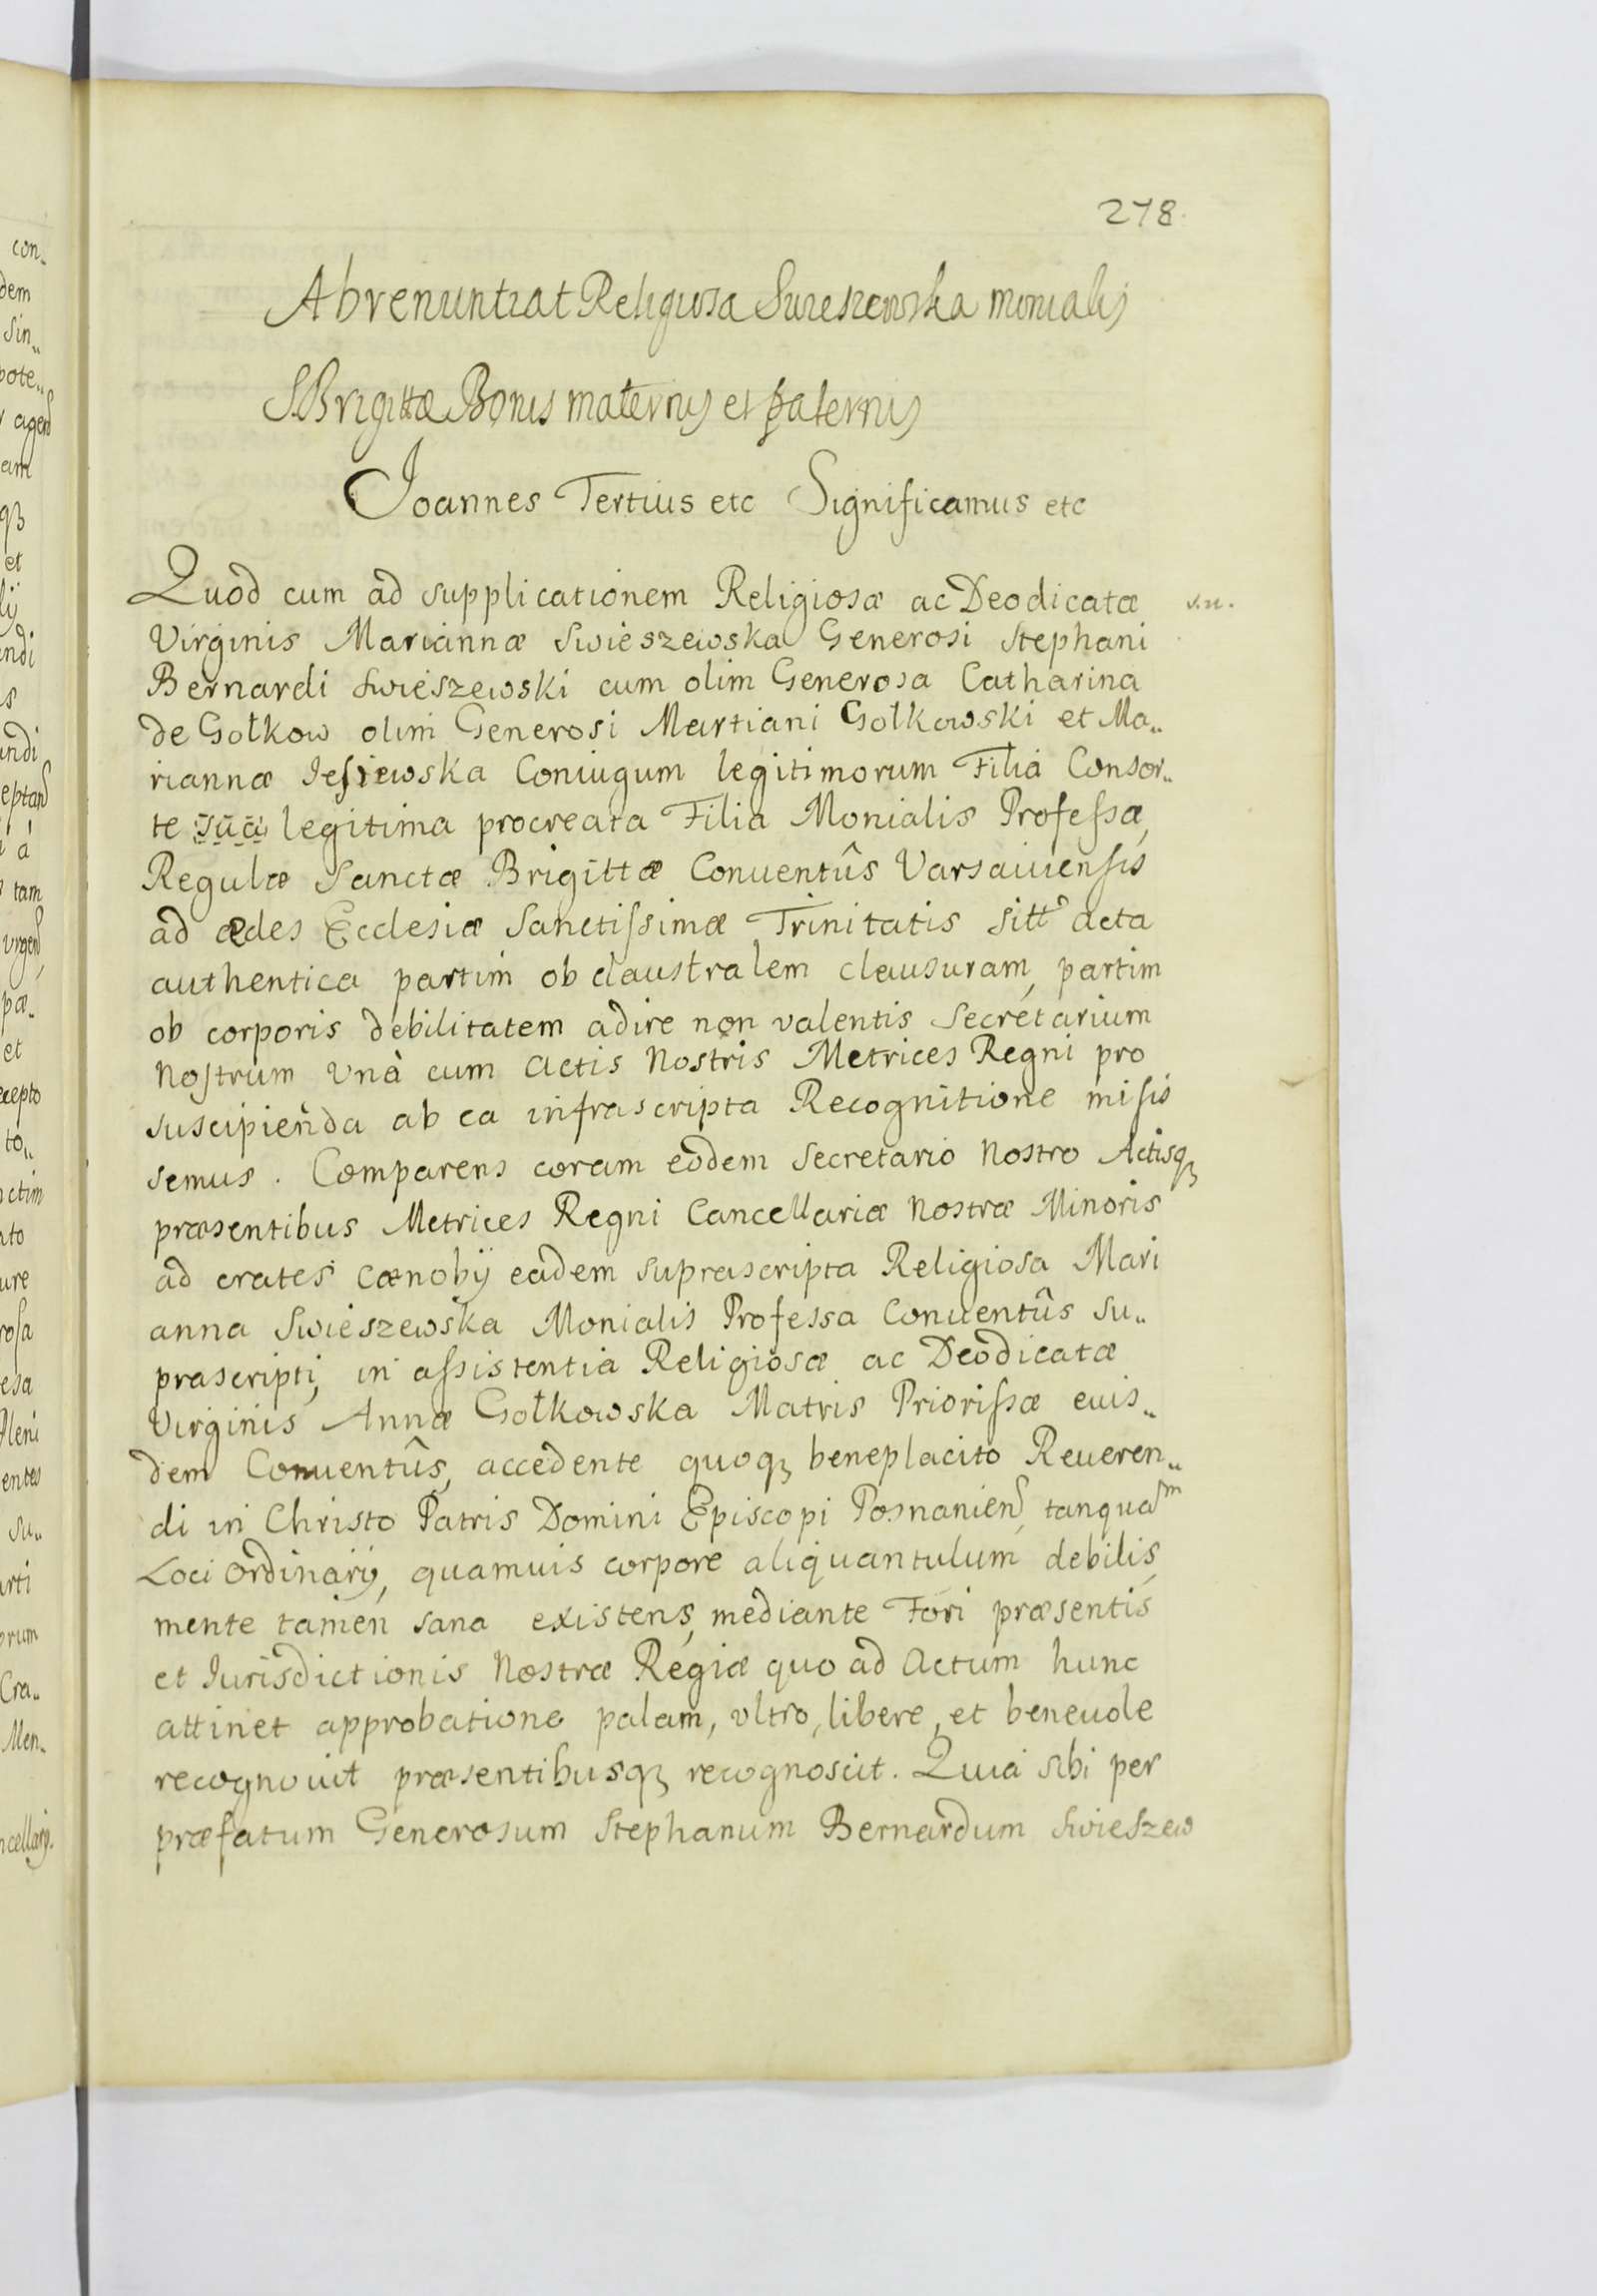 278.
Abrenuntiat Religiosa Swieszewska monialis
S. Brigittæ Bonis maternis et paternis
Joannes Tertius etc Significamus etc
Quod cum ad supplicationem Religiosæ ac Deodicatæ
Virginis Mariannæ Swieszewska Generosi Stephani
Bernardi Swieszewski cum olim Generosa Catharina
de Gołkow olim Generosi Martiani Gołkowski et Ma„
riannæ Jesiewska Coniugum legitimorum Filia Consor„
te sua legitima procreata Filia Monialis Professæ,
Regulæ Sanctæ Brigittæ Conuentûs Varsauiensis
ad ædes Ecclesiæ Sanctissimæ Trinitatis sitt' acta
authentica partim ob claustralem clausuram, partim
ob corporis debilitatem adire non valentis Secretarium
Nostrum vnà cum Actis Nostris Metrices Regni pro
suscipienda ab ea infrascripta Recognitione misis
semus. Comparens coram eodem Secretario Nostro Actisqꝫ
præsentibus Metrices Regni Cancellariæ Nostræ Minoris
ad crates Cænobij eadem suprascripta Religiosa Mari
anna Swieszewska Monialis Professa Conuentûs su„
prascripti, in assistentia Religiosæ ac Deodicatæ
Virginis Annæ Gołkowska Matris Priorissæ euis„
dem Conuentûs, accedente quoqꝫ beneplacito Reueren„
di in Christo Patris Domini Episcopi Posnanien, tanquam
Loci Ordinarij, quamuis corpore aliquantulum debilis,
mente tamen sana existens, mediante Fori præsentis
et Iurisdictionis Nostræ Regiæ quo ad Actum hunc
attinet approbatione palam, vltro, libere, et beneuole
recognouit præsentibusqꝫ recognoscit. Quia sibi per
præfatum Generosum Stephanum Bernardum Swieszew